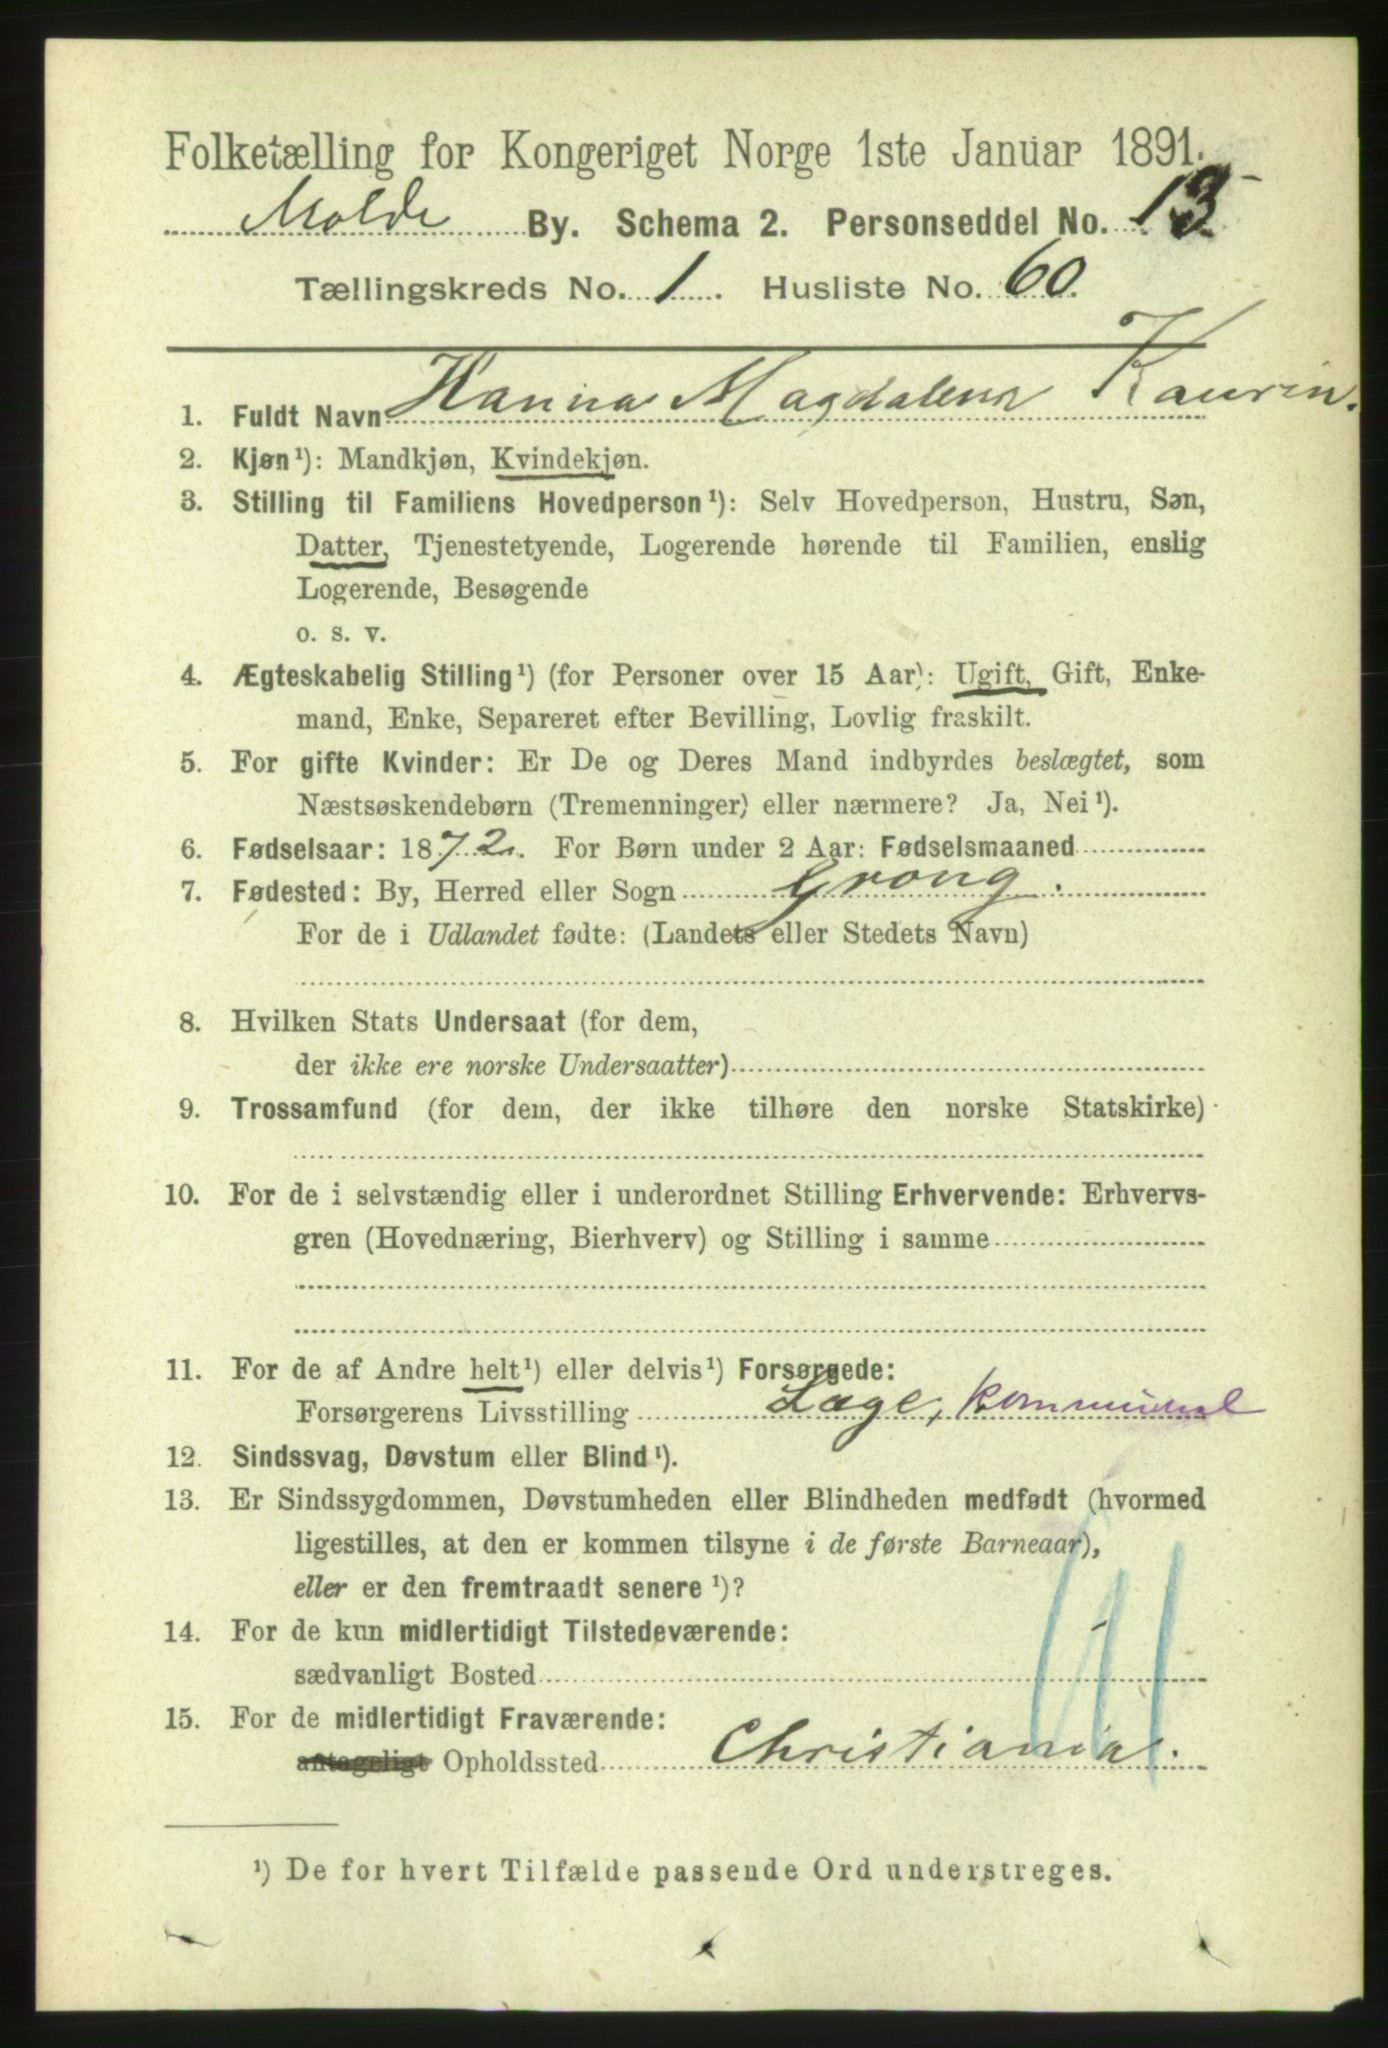 Folketælling for Kongeriget Norge 1ste Januar 1891.
Molde By. Schema 2. Personseddel No. 13
Tællingskreds No. 1. Husliste No. 60.
1. Fuldt Navn Hanna Magdalena Kaurin.
2. Kjøn¹): Mandkjøn, Kvindekjøn.
3. Stilling til Familiens Hovedperson¹): Selv Hovedperson, Hustru, Søn,
Datter, Tjenestetyende, Logerende hørende til Familien, enslig
Logerende, Besøgende
o. s. v.
4. Ægteskabelig Stilling¹) (for Personer over 15 Aar): Ugift, Gift, Enke-
mand, Enke, Separeret efter Bevilling, Lovlig fraskilt.
5. For gifte Kvinder: Er De og Deres Mand indbyrdes beslægtet, som
Næstsøskendebørn (Tremenninger) eller nærmere? Ja, Nei¹).
6. Fødselsaar: 1872. For Børn under 2 Aar: Fødselsmaaned
7. Fødested: By, Herred eller Sogn Grong.
For de i Udlandet fødte: (Landets eller Stedets Navn)
8. Hvilken Stats Undersaat (for dem,
der ikke ere norske Undersaatter)
9. Trossamfund (for dem, der ikke tilhøre den norske Statskirke)
10. For de i selvstændig eller i underordnet Stilling Erhvervende: Erhvervs-
gren (Hovednæring, Bierhverv) og Stilling i samme
11. For de af Andre helt¹) eller delvis¹) Forsørgede:
Forsørgerens Livsstilling Læge, kommunal
12. Sindssvag, Døvstum eller Blind¹).
13. Er Sindssygdommen, Døvstumheden eller Blindheden medfødt (hvormed
ligestilles, at den er kommen tilsyne i de første Barneaar),
eller er den fremtraadt senere¹)?
14. For de kun midlertidigt Tilstedeværende:
sædvanligt Bosted
15. For de midlertidigt Fraværende:
antageligt Opholdssted Christiania.
¹) De for hvert Tilfælde passende Ord understreges.